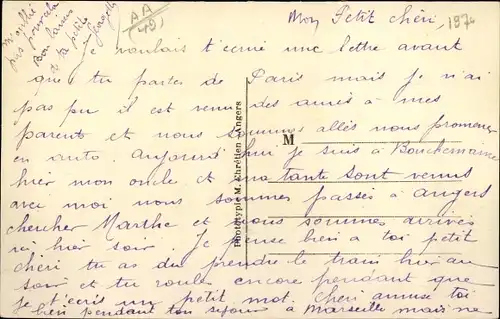 Mon Petit chéri,
Je voulais t'ecrire une lettre avant
que tu partes de Paris mais je n'ai
pas pu il est venu des amis à mes
parents et nous sommes allés nous promener
en auto. Aujourd'hui je suis à Bouchemaine
hier mon oncle et ma tante sont venus
avec moi nous sommes passés à Angers
chercher Marthe et nous sommes arrivés
ici hier soir. Je pense bien a toi petit
chéri tu as du prendre le train hier au
soir et tu roules encore pendant que
je t'ecris un petit mot. Chéri amuse toi
bien pendant ton sejour à Marseille mais ne
m'oublie
pas pourtant
Bon baisers
de ta petite
AA
(49)
197
M
Phototypie M. Chrétien Angers